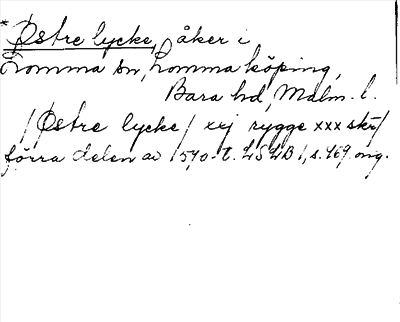 * Østre lycke, åker i
Lomma sn, Lomma köping,
Bara hd, Malm. l.
/Østre lycke/ xxj rygge xxx skr/
förra delen av 1540-t. LSLB 1, s. 469 orig.